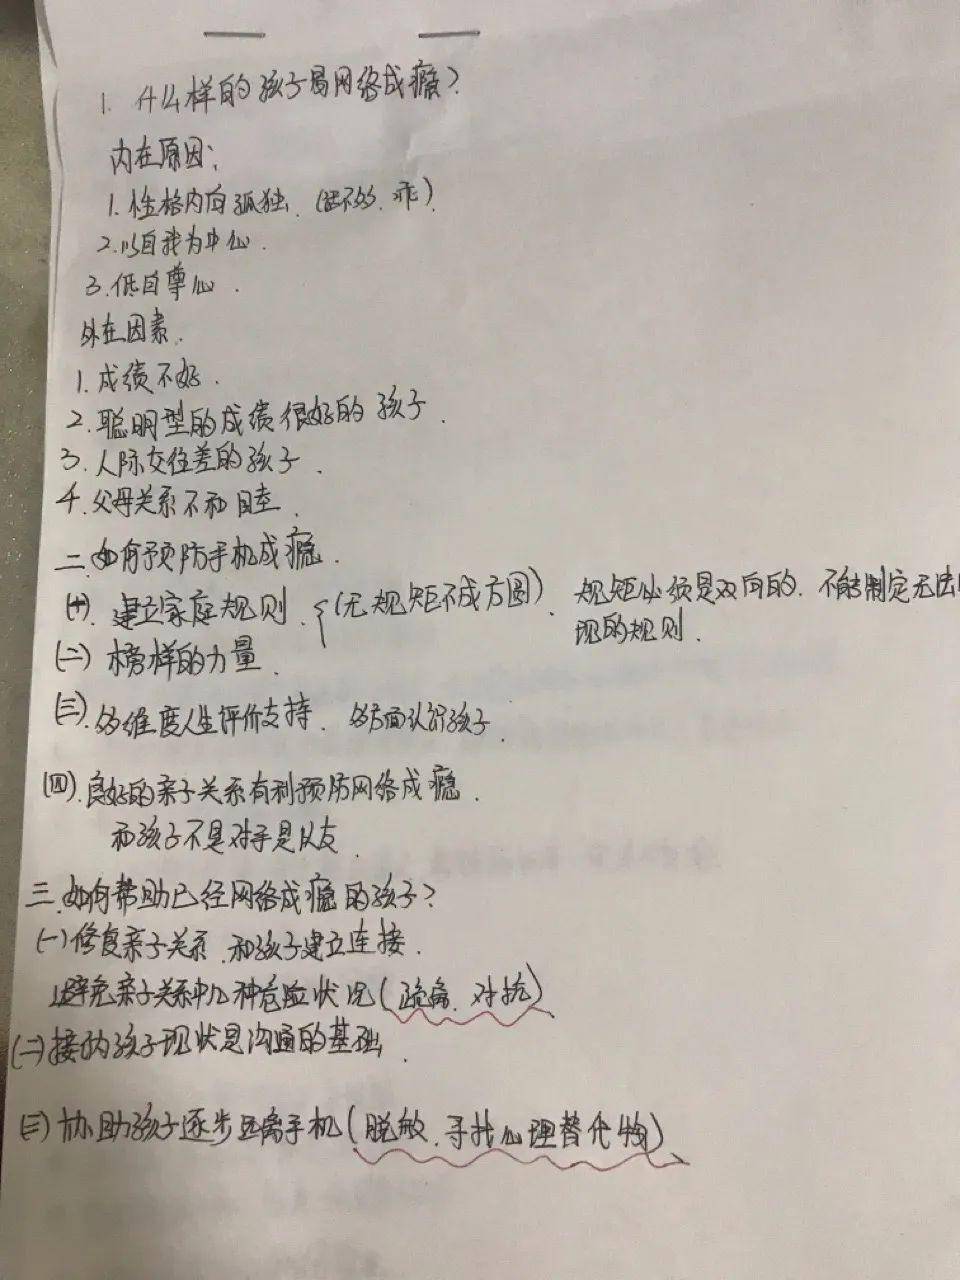 1. 什么样的孩子易网络成瘾？
内在原因：
1. 性格内向孤独.（ 乖）
2. 以自我为中心.
3. 低自尊心.
外在因素.
1. 成绩不好.
2. 聪明型的成绩很好的孩子.
3. 人际交往差的孩子.
4. 父母关系不和睦.
二.如何预防手机成瘾.
(一) 建立家庭规则.{(无规矩不成方圆). 规矩必须是双向的. 不能制定无法
现的规则.
(二) 榜样的力量.
(三).多维度人生评价支持. 多方面认识孩子.
(四).良好的亲子关系有利预防网络成瘾.
和孩子不是对手是队友.
三.如何帮助已经网络成瘾的孩子？
(一)修复亲子关系.和孩子建立连接.
避免亲子关系中几种危险状况(疏离.对抗)
(二)接纳孩子现状是沟通的基础.
(三)协助孩子逐步远离手机(脱敏.寻找心理替代物)